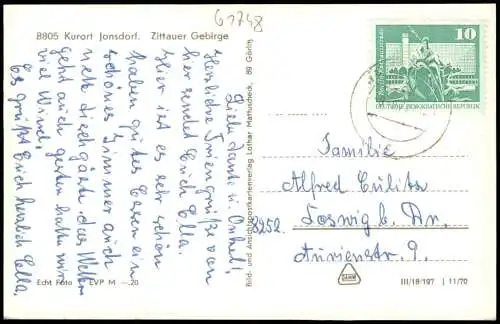 61748
8805 Kurort Jonsdorf. Zittauer Gebirge
Liebe Tante u. Onkel!
Herzliche Feriengrüße von
hier sendet Euch Ella.
Hier ist es sehr schön
haben gutes Essen ein
schönes Zimmer auch
nette Tischgäste das Wetter
geht auch gestern hatten wir
viel Wind,
Es grüßt Euch herzlich Ella.
Echt Foto EVP M -.20
Bild- und Ansichtspostkartenverlag Lothar Mathatscheck, 89 Görlitz
10
DEUTSCHE DEMOKRATISCHE REPUBLIK
Familie
Alfred
8252 Coswig b. Dr.
9.
III/18/197 11/70